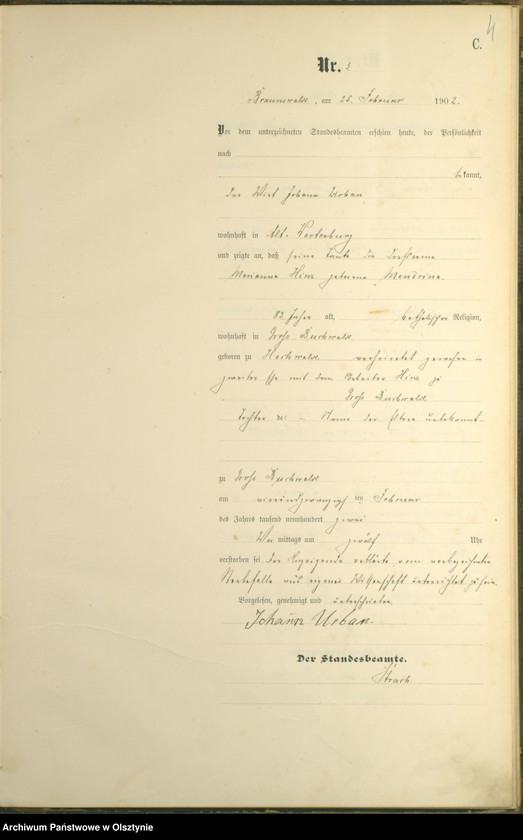 4
C.
Nr. 2
Braunswalde, am 25. Februar 1902.
Vor dem unterzeichneten Standesbeamten erschien heute, der Persönlichkeit
nach
bekannt,
der Wirt Johann Urban
wohnhaft in Alt-Wartenburg
und zeigte an, daß seine Tante die
Marianna Hinz geborene
82 Jahre alt, katholischer Religion,
wohnhaft in Groß Buchwalde
geboren zu verheiratet gewesen in
zweiter Ehe mit dem Arbeiter Hinz zu
Groß Buchwalde
Tochter de – Name der Eltern unbekannt –
zu Groß Buchwalde
am vierundzwanzigsten Februar
des Jahres tausend neunhundert zwei
Vormittags um zwölf Uhr
verstorben sei. Der Anzeigende erklärte, vom vorbezeichneten
Sterbefalle aus eigener Wissenschaft unterrichtet zu sein.
Vorgelesen, genehmigt und unterschrieben
Johann Urban.
Der Standesbeamte.
Archiwum Państwowe w Olsztynie